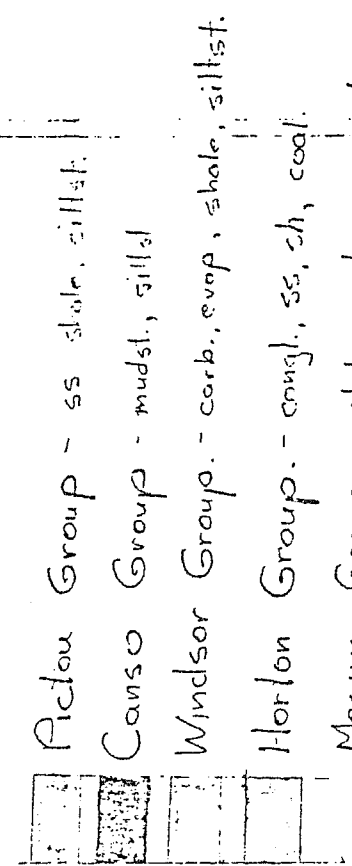 Pictou Group - ss shale, siltst.
Canso Group - mudst., siltst
Windsor Group. - carb., evap, shale, siltst.
Horton Group. - congl., ss, sh, coal.